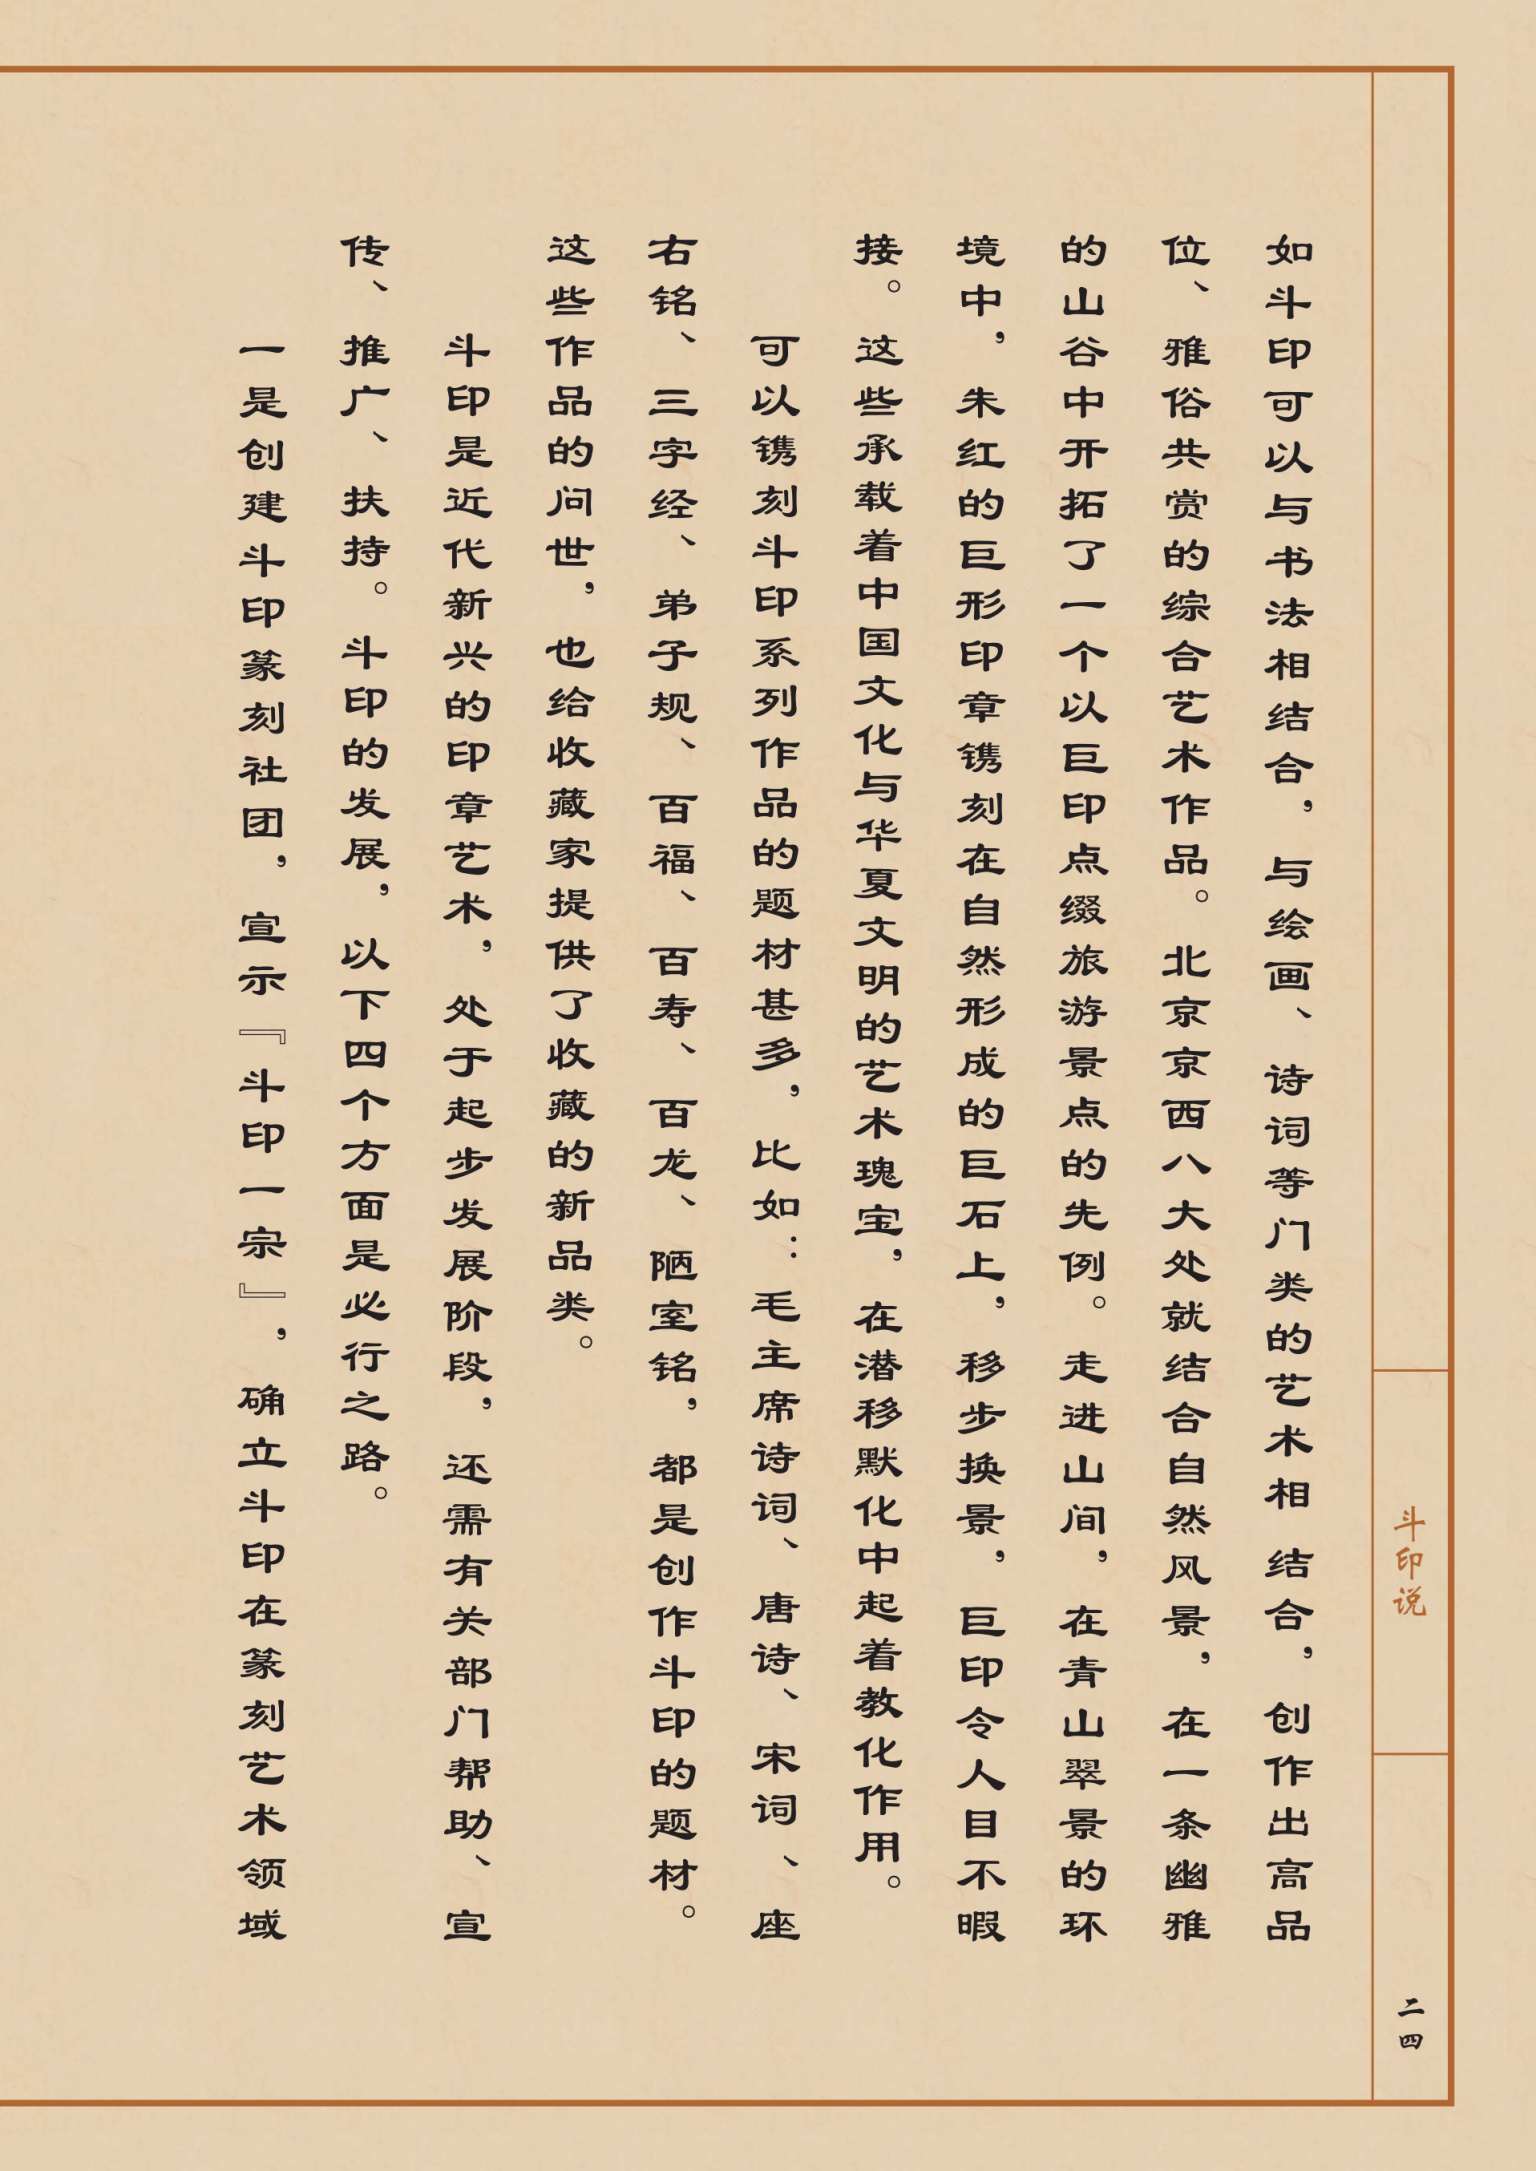 如斗印可以与书法相结合，与绘画、诗词等门类的艺术相结合，创作出高品
位、雅俗共赏的综合艺术作品。北京京西八大处就结合自然风景，在一条幽雅
的山谷中开拓了一个以巨印点缀旅游景点的先例。走进山间，在青山翠景的环
境中，朱红的巨形印章镌刻在自然形成的巨石上，移步换景，巨印令人目不暇
接。这些承载着中国文化与华夏文明的艺术瑰宝，在潜移默化中起着教化作用。
可以镌刻斗印系列作品的题材甚多，比如：毛主席诗词、唐诗、宋词、座
右铭、三字经、弟子规、百福、百寿、百龙、陋室铭，都是创作斗印的题材。
这些作品的问世，也给收藏家提供了收藏的新品类。
斗印是近代新兴的印章艺术，处于起步发展阶段，还需有关部门帮助、宣
传、推广、扶持。斗印的发展，以下四个方面是必行之路。
一是创建斗印篆刻社团，宣示『斗印一宗』，确立斗印在篆刻艺术领域
斗印说
二四